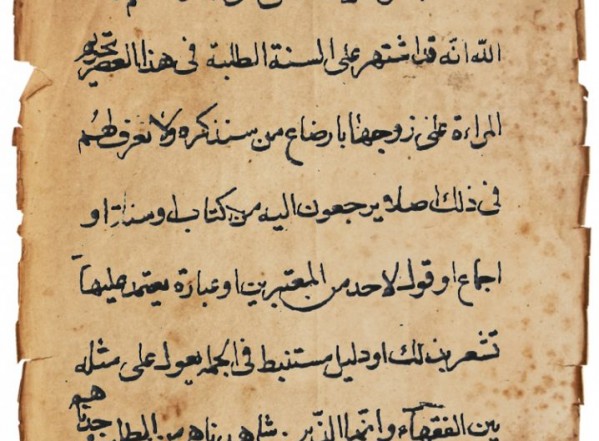 الله انه قد اشتهر على السنة الطلبة فى هذا العصر تحريم
المراءة على زوجها بارضاع من سنذكره ولا نعرف لهم
فى ذلك اصلا يرجعون اليه من كتاب او سنة او
اجماع او قول لاحد من المعتبرين او عبارة يعتمد عليها
تشعر بذلك او دليل مستنبط فى الجملة يعول على مثله
بين الفقهاء وانما الذين شاهدناهم من الطلبة وجدناهم